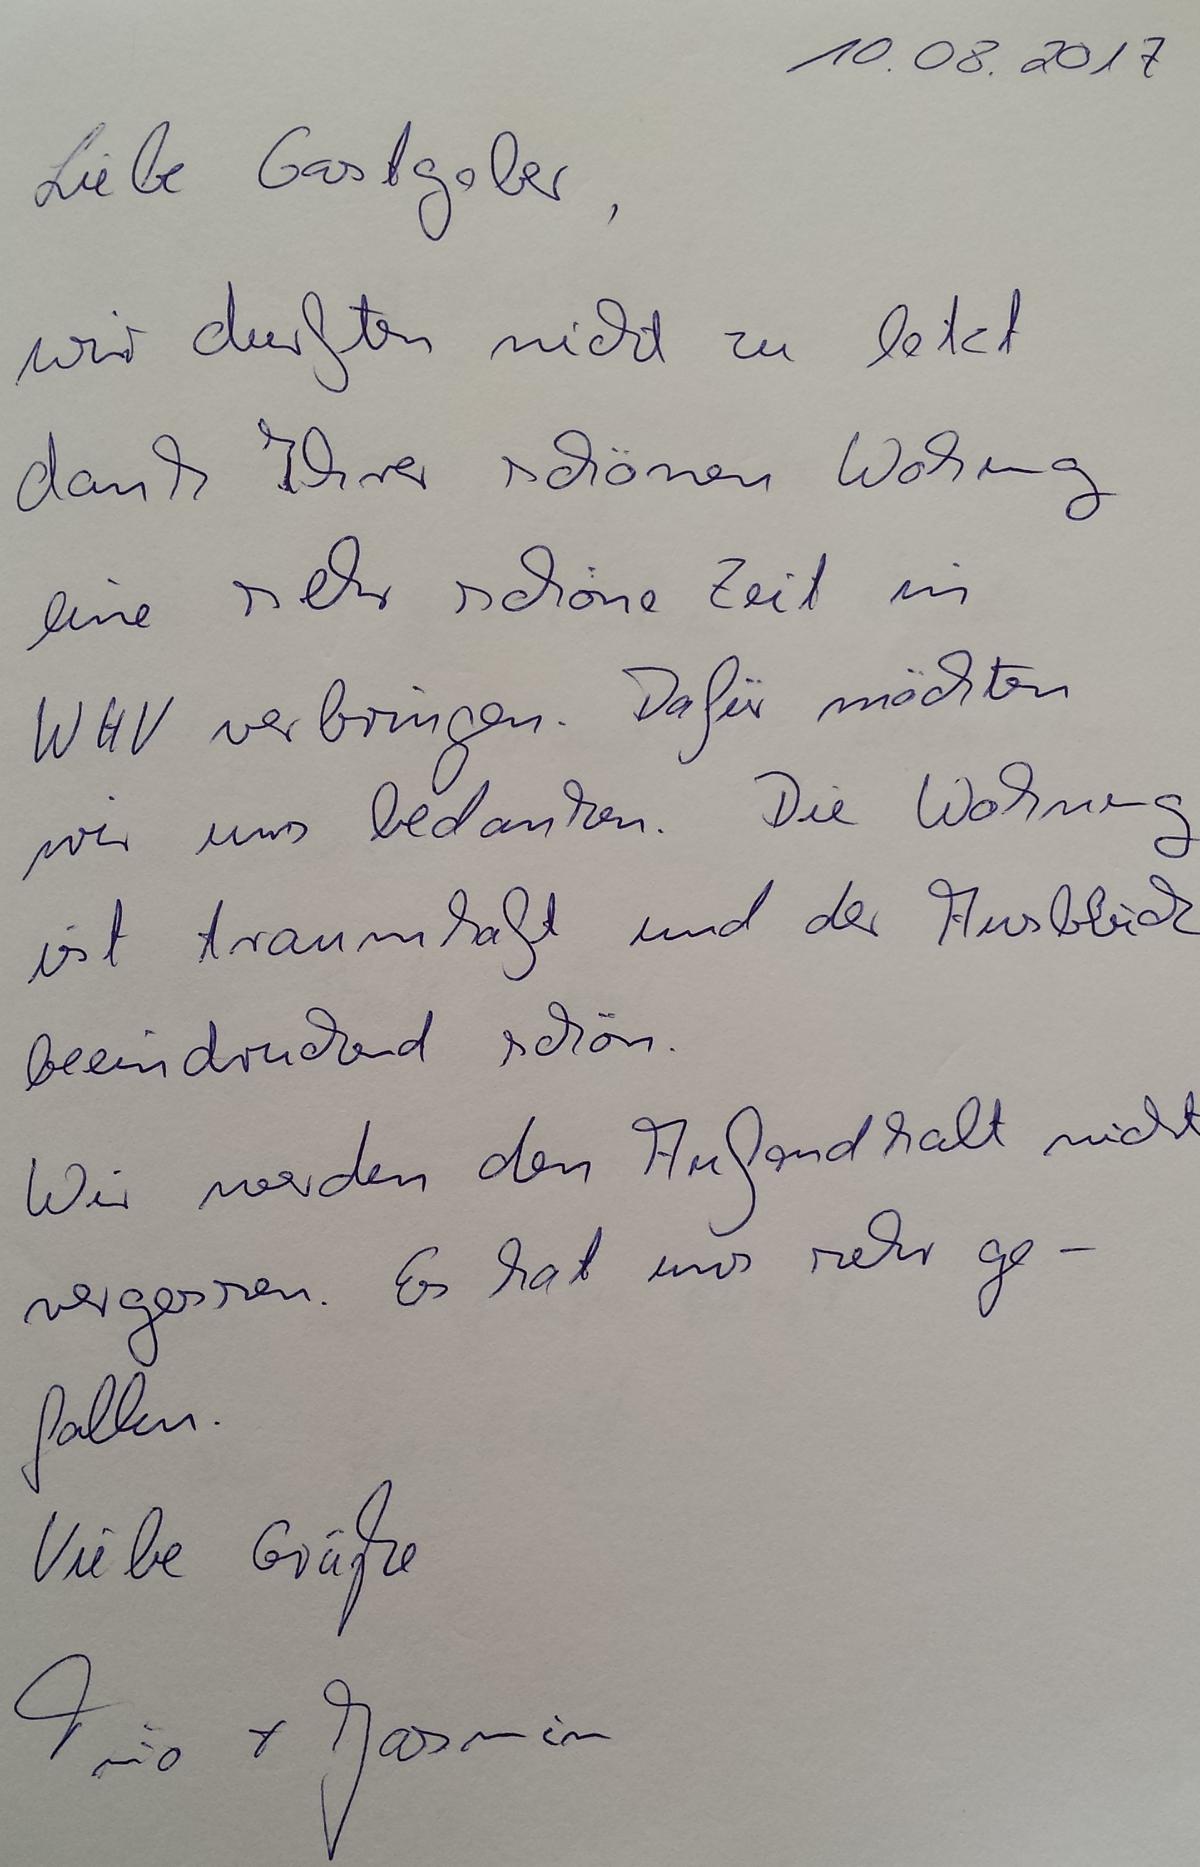 10.08.2017
Liebe Gastgeber,
wir durften nicht zu letzt
dank Ihrer schönen Wohnung
eine sehr schöne Zeit in
WHV verbringen. Dafür möchten
wir uns bedanken. Die Wohnung
ist traumhaft und der Ausblick
beeindruckend schön.
Wir werden den Aufendhalt nicht
vergessen. Es hat uns sehr ge-
fallen.
Viebe Grüße
+ Yasmin